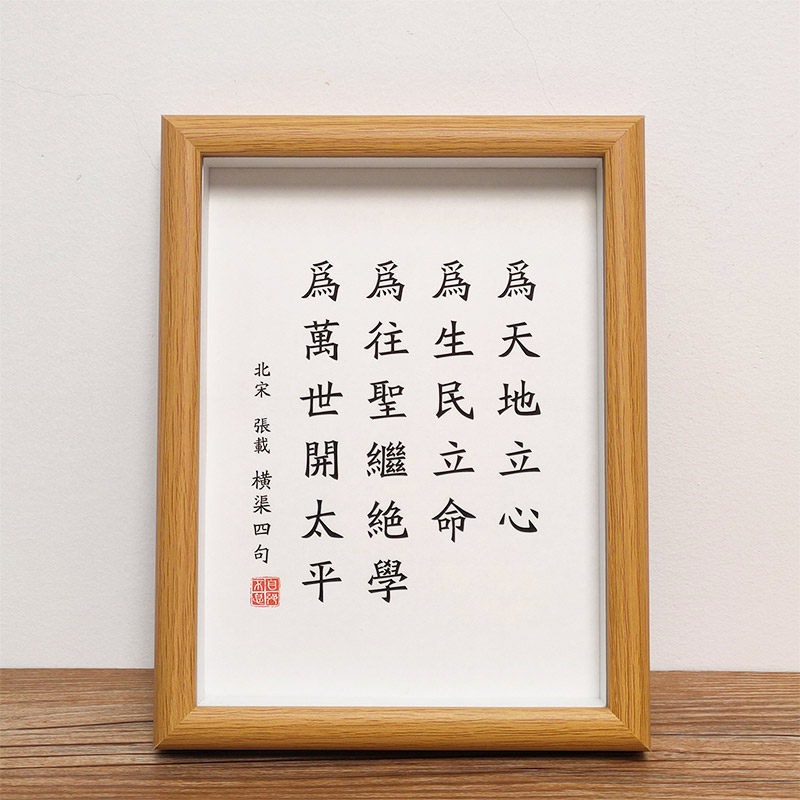 爲天地立心
爲生民立命
爲往聖繼絶學
爲萬世開太平
北宋 張載 橫渠四句
自強不息